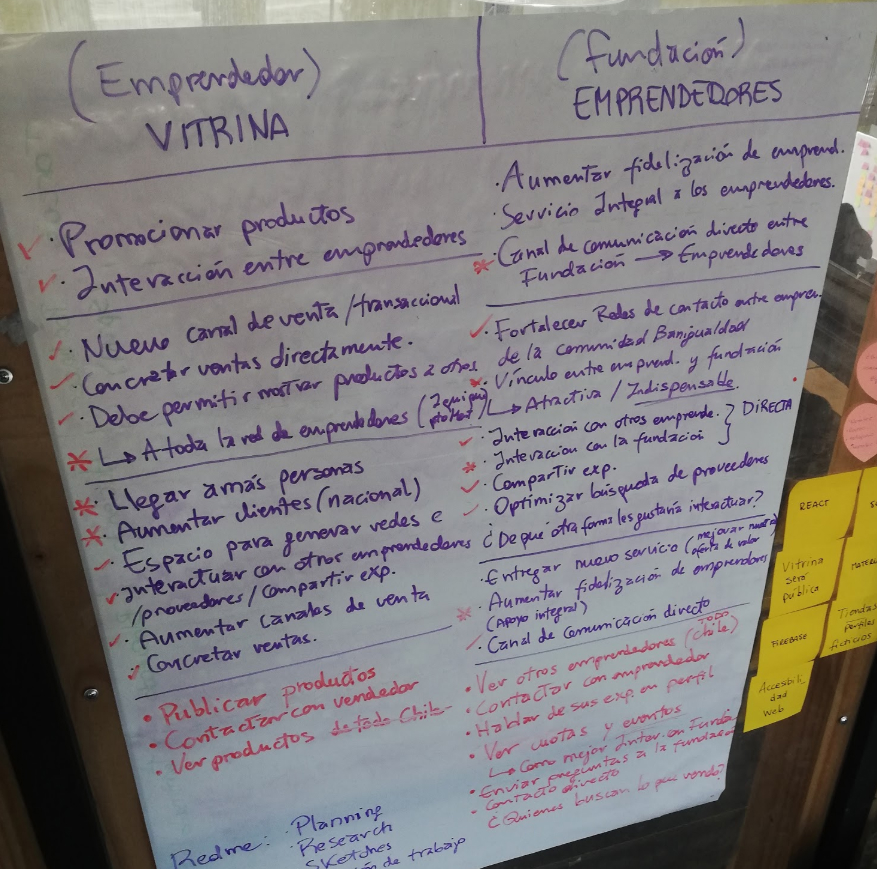 (Emprendedor)
VITRINA
· Promocionar productos
· Interacción entre emprendedores
· Nuevo canal de venta/transaccional
· Concretar ventas directamente.
· Debe permitir mostrar productos a otros
↳ A toda la red de emprendedores
· Llegar a más personas
· Aumentar clientes (nacional)
· Espacio para generar redes e
interactuar con otros emprendedores
/proveedores/compartir exp.
· Aumentar canales de venta
· Concretar ventas.
· Publicar productos
· Contactar con vendedor
· Ver productos de todo Chile
Redme: · Planning
· Research
Sketches
de trabajo
(Fundación)
EMPRENDEDORES
· Aumentar fidelización de emprend.
· Servicio Integral a los emprendedores.
· Canal de comunicación directo entre
Fundación → Emprendedores
· Fortalecer Redes de contacto entre empren.
de la comunidad Banigualdad
· Vínculo entre emprend. y fundación
↳ Atractiva / Indispensable.
· Interacción con otros emprende. } DIRECTA
· Interaccion con la fundación
· Compartir exp.
· Optimizar búsqueda de proveedores
¿De que otra forma les gustaría interactuar?
· Entregar nuevo servicio (mejorar nuestra
oferta de valor
· Aumentar fidelización de emprendedores
(Apoyo integral)
· Canal de comunicación directo
· Ver otros emprendedores (TODO Chile)
· Contactar con emprendedor
· Hablar de sus exp. en perfil
· Ver cuotas y eventos
↳ Como mejor Inter. con Funda
· Enviar preguntas a la fundación
· Contacto directo
¿Quienes buscan lo que vendo?
REACT
Vitrina
será
pública
FIREBASE
Tiendas
perfiles
ficticios
Accesibili
dad
Web